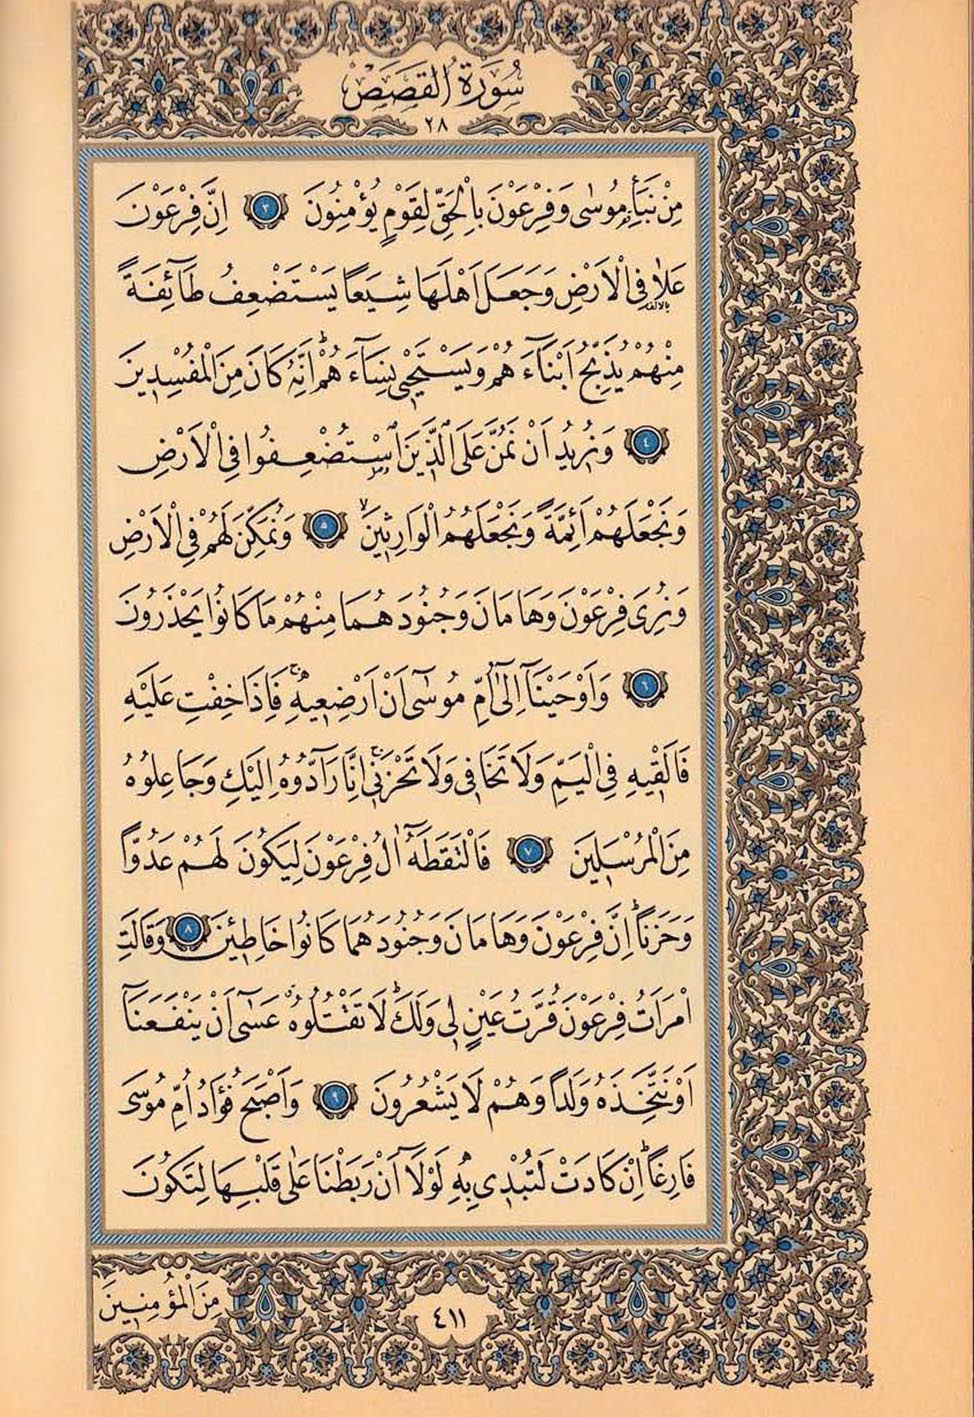 سُورَةُ الْقَصَصِ
٢٨
مِنْ نَبَأِ مُوسٰى وَفِرْعَوْنَ بِالْحَقِّ لِقَوْمٍ يُؤْمِنُونَ ٣ اِنَّ فِرْعَوْنَ
عَلَا فِى الْاَرْضِ وَجَعَلَ اَهْلَهَا شِيَعًا يَسْتَضْعِفُ طَٓائِفَةً
بالالف
مِنْهُمْ يُذَبِّحُ اَبْنَٓاءَهُمْ وَيَسْتَحْيٖ نِسَٓاءَهُمْ ۜ اِنَّهُ كَانَ مِنَ الْمُفْسِدٖينَ
٤ وَنُرٖيدُ اَنْ نَمُنَّ عَلَى الَّذٖينَ اسْتُضْعِفُوا فِى الْاَرْضِ
وَنَجْعَلَهُمْ اَئِمَّةً وَنَجْعَلَهُمُ الْوَارِثٖينَ ۙ ٥ وَنُمَكِّنَ لَهُمْ فِى الْاَرْضِ
وَنُرِىَ فِرْعَوْنَ وَهَامَانَ وَجُنُودَهُمَا مِنْهُمْ مَا كَانُوا يَحْذَرُونَ
٦ وَاَوْحَيْنَٓا اِلٰٓى اُمِّ مُوسٰٓى اَنْ اَرْضِعٖيهِ ۚ فَاِذَا خِفْتِ عَلَيْهِ
فَاَلْقٖيهِ فِى الْيَمِّ وَلَا تَخَافٖى وَلَا تَحْزَنٖى ۚ اِنَّا رَٓادُّوهُ اِلَيْكِ وَجَاعِلُوهُ
مِنَ الْمُرْسَلٖينَ ٧ فَالْتَقَطَهُٓ اٰلُ فِرْعَوْنَ لِيَكُونَ لَهُمْ عَدُوًّا
وَحَزَنًا ۜ اِنَّ فِرْعَوْنَ وَهَامَانَ وَجُنُودَهُمَا كَانُوا خَاطِـٖٔينَ ٨ وَقَالَتِ
امْرَاَتُ فِرْعَوْنَ قُرَّتُ عَيْنٍ لٖى وَلَكَ ۜ لَا تَقْتُلُوهُ ۗ عَسٰٓى اَنْ يَنْفَعَنَٓا
اَوْ نَتَّخِذَهُ وَلَدًا وَهُمْ لَا يَشْعُرُونَ ٩ وَاَصْبَحَ فُؤٰادُ اُمِّ مُوسٰى
فَارِغًا ۜ اِنْ كَادَتْ لَتُبْدٖى بِهٖ لَوْلَٓا اَنْ رَبَطْنَا عَلٰى قَلْبِهَا لِتَكُونَ
مِنَ الْمُؤْمِنٖينَ
٤١١